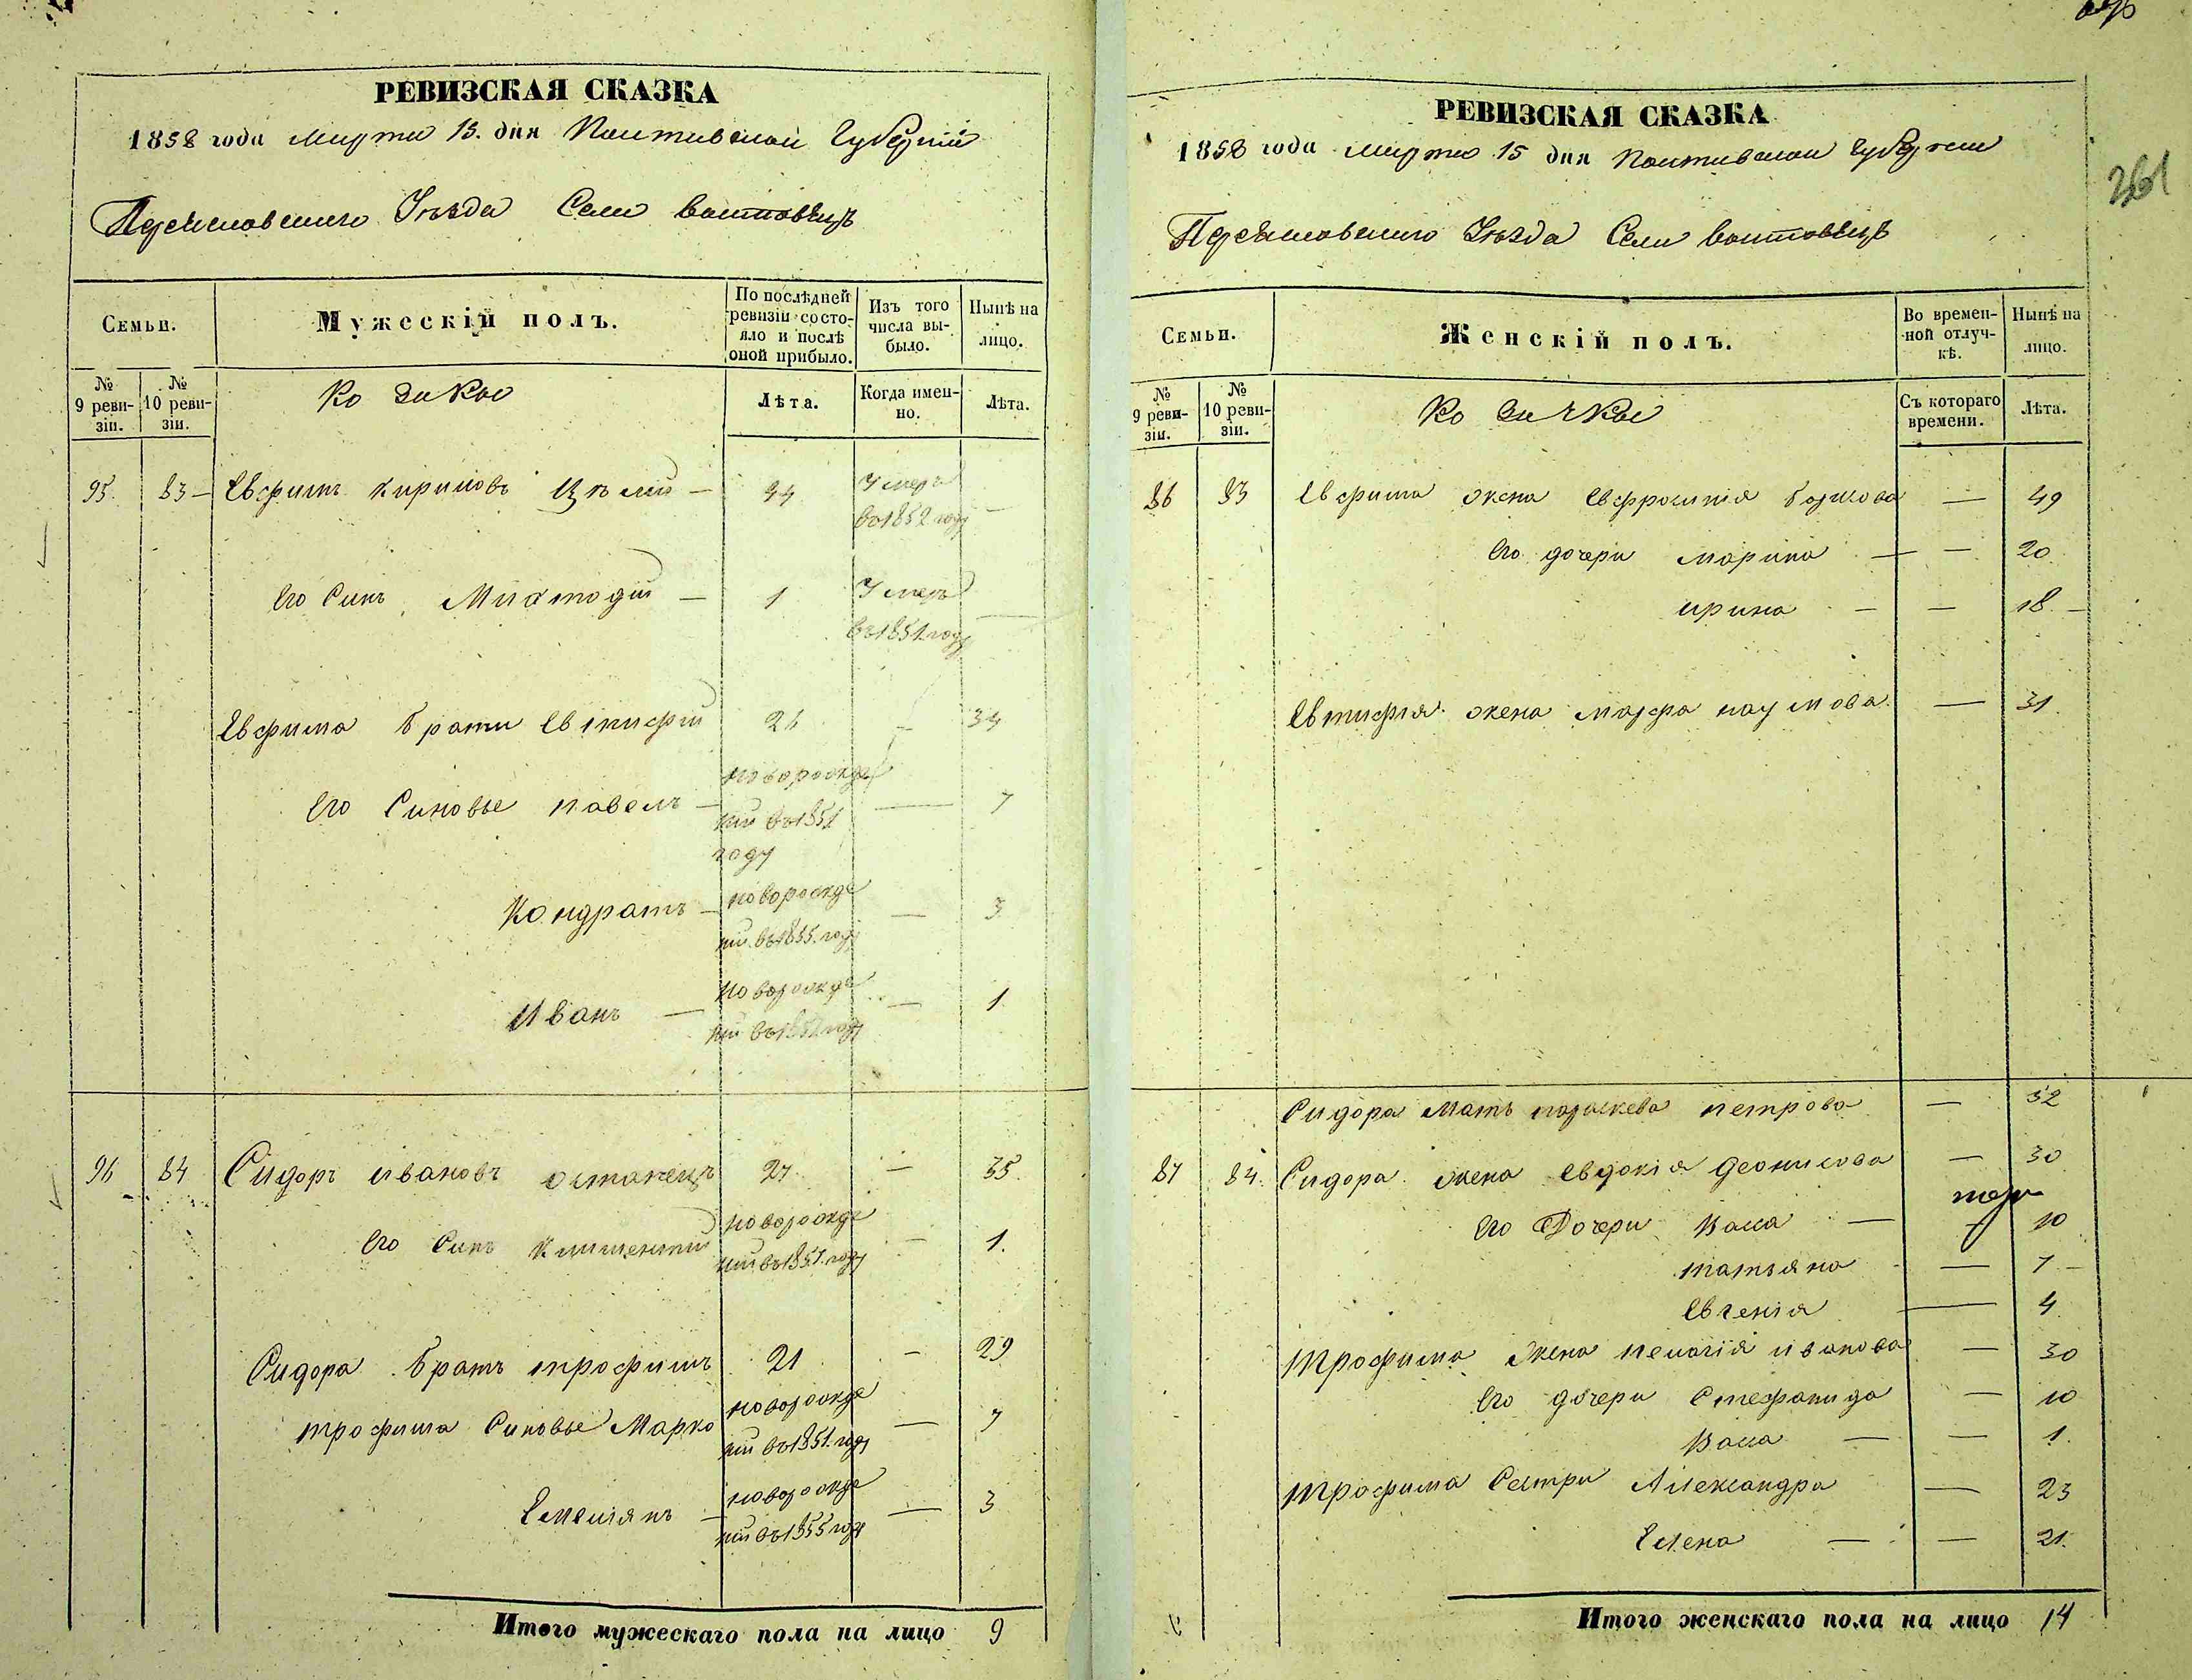 РЕВИЗСКАЯ СКАЗКА
1858 года марта 15. дня Полтавской Губернии
Переяславского Уезда Села Войтовецъ
Семьи.
Мужескій полъ.
По послѣдней ревизіи состояло и послѣ оной прибыло.
Изъ того числа выбыло.
Нынѣ на лицо.
№ 9 ревизіи.
№ 10 ревизіи.
Козаки
Лѣта.
Когда именно.
Лѣта.
95. 83 Евфимъ Кириловъ 44 Умеръ въ 1852 году
Его Синъ 1 Умеръ въ 1851 году
Евфима брать Евтифій 26 34
Его Синовье Павелъ новорожденій въ 1851 году 7
Кондратъ новорожденій въ 1855 году 3
Иванъ новорожденій 1
96 84 Сидоръ Ивановъ Остапецъ 27 35.
Его Синъ Климентій новорожденій въ 1857. году 1.
Сидора братъ трофимъ 21 29
трофима Синовье Марко новорожденій въ 1851 году 7
Емеліянъ новорожденій въ 1855 году 3
Итого мужескаго пола на лицо 9
РЕВИЗСКАЯ СКАЗКА
1858 года марта 15 дня Полтавской губернии
Переяславского Уезда Села Войтовецъ
261
Семьи.
Женскій полъ.
Во временной отлучкѣ.
Нынѣ на лицо.
№ 9 ревизіи.
№ 10 ревизіи.
Козачки
Съ котораго времени.
Лѣта.
86 83 Евфима жена Евфросинія 49
Его дочери марина 20
ирина 18
Евтифія жена марфа наумова 31
Сидора Мать параскева петрова 52
87 84. Сидора жена Евдокія Деонисова 30
Его Дочери Васса 10
татьяна 7
Евгенія 4
трофима жена пелагія иванова 30
Его дочери Стефанида 10
Васса 1.
трофима Сестри Александра 23
Елена 21.
Итого женскаго пола на лицо 14